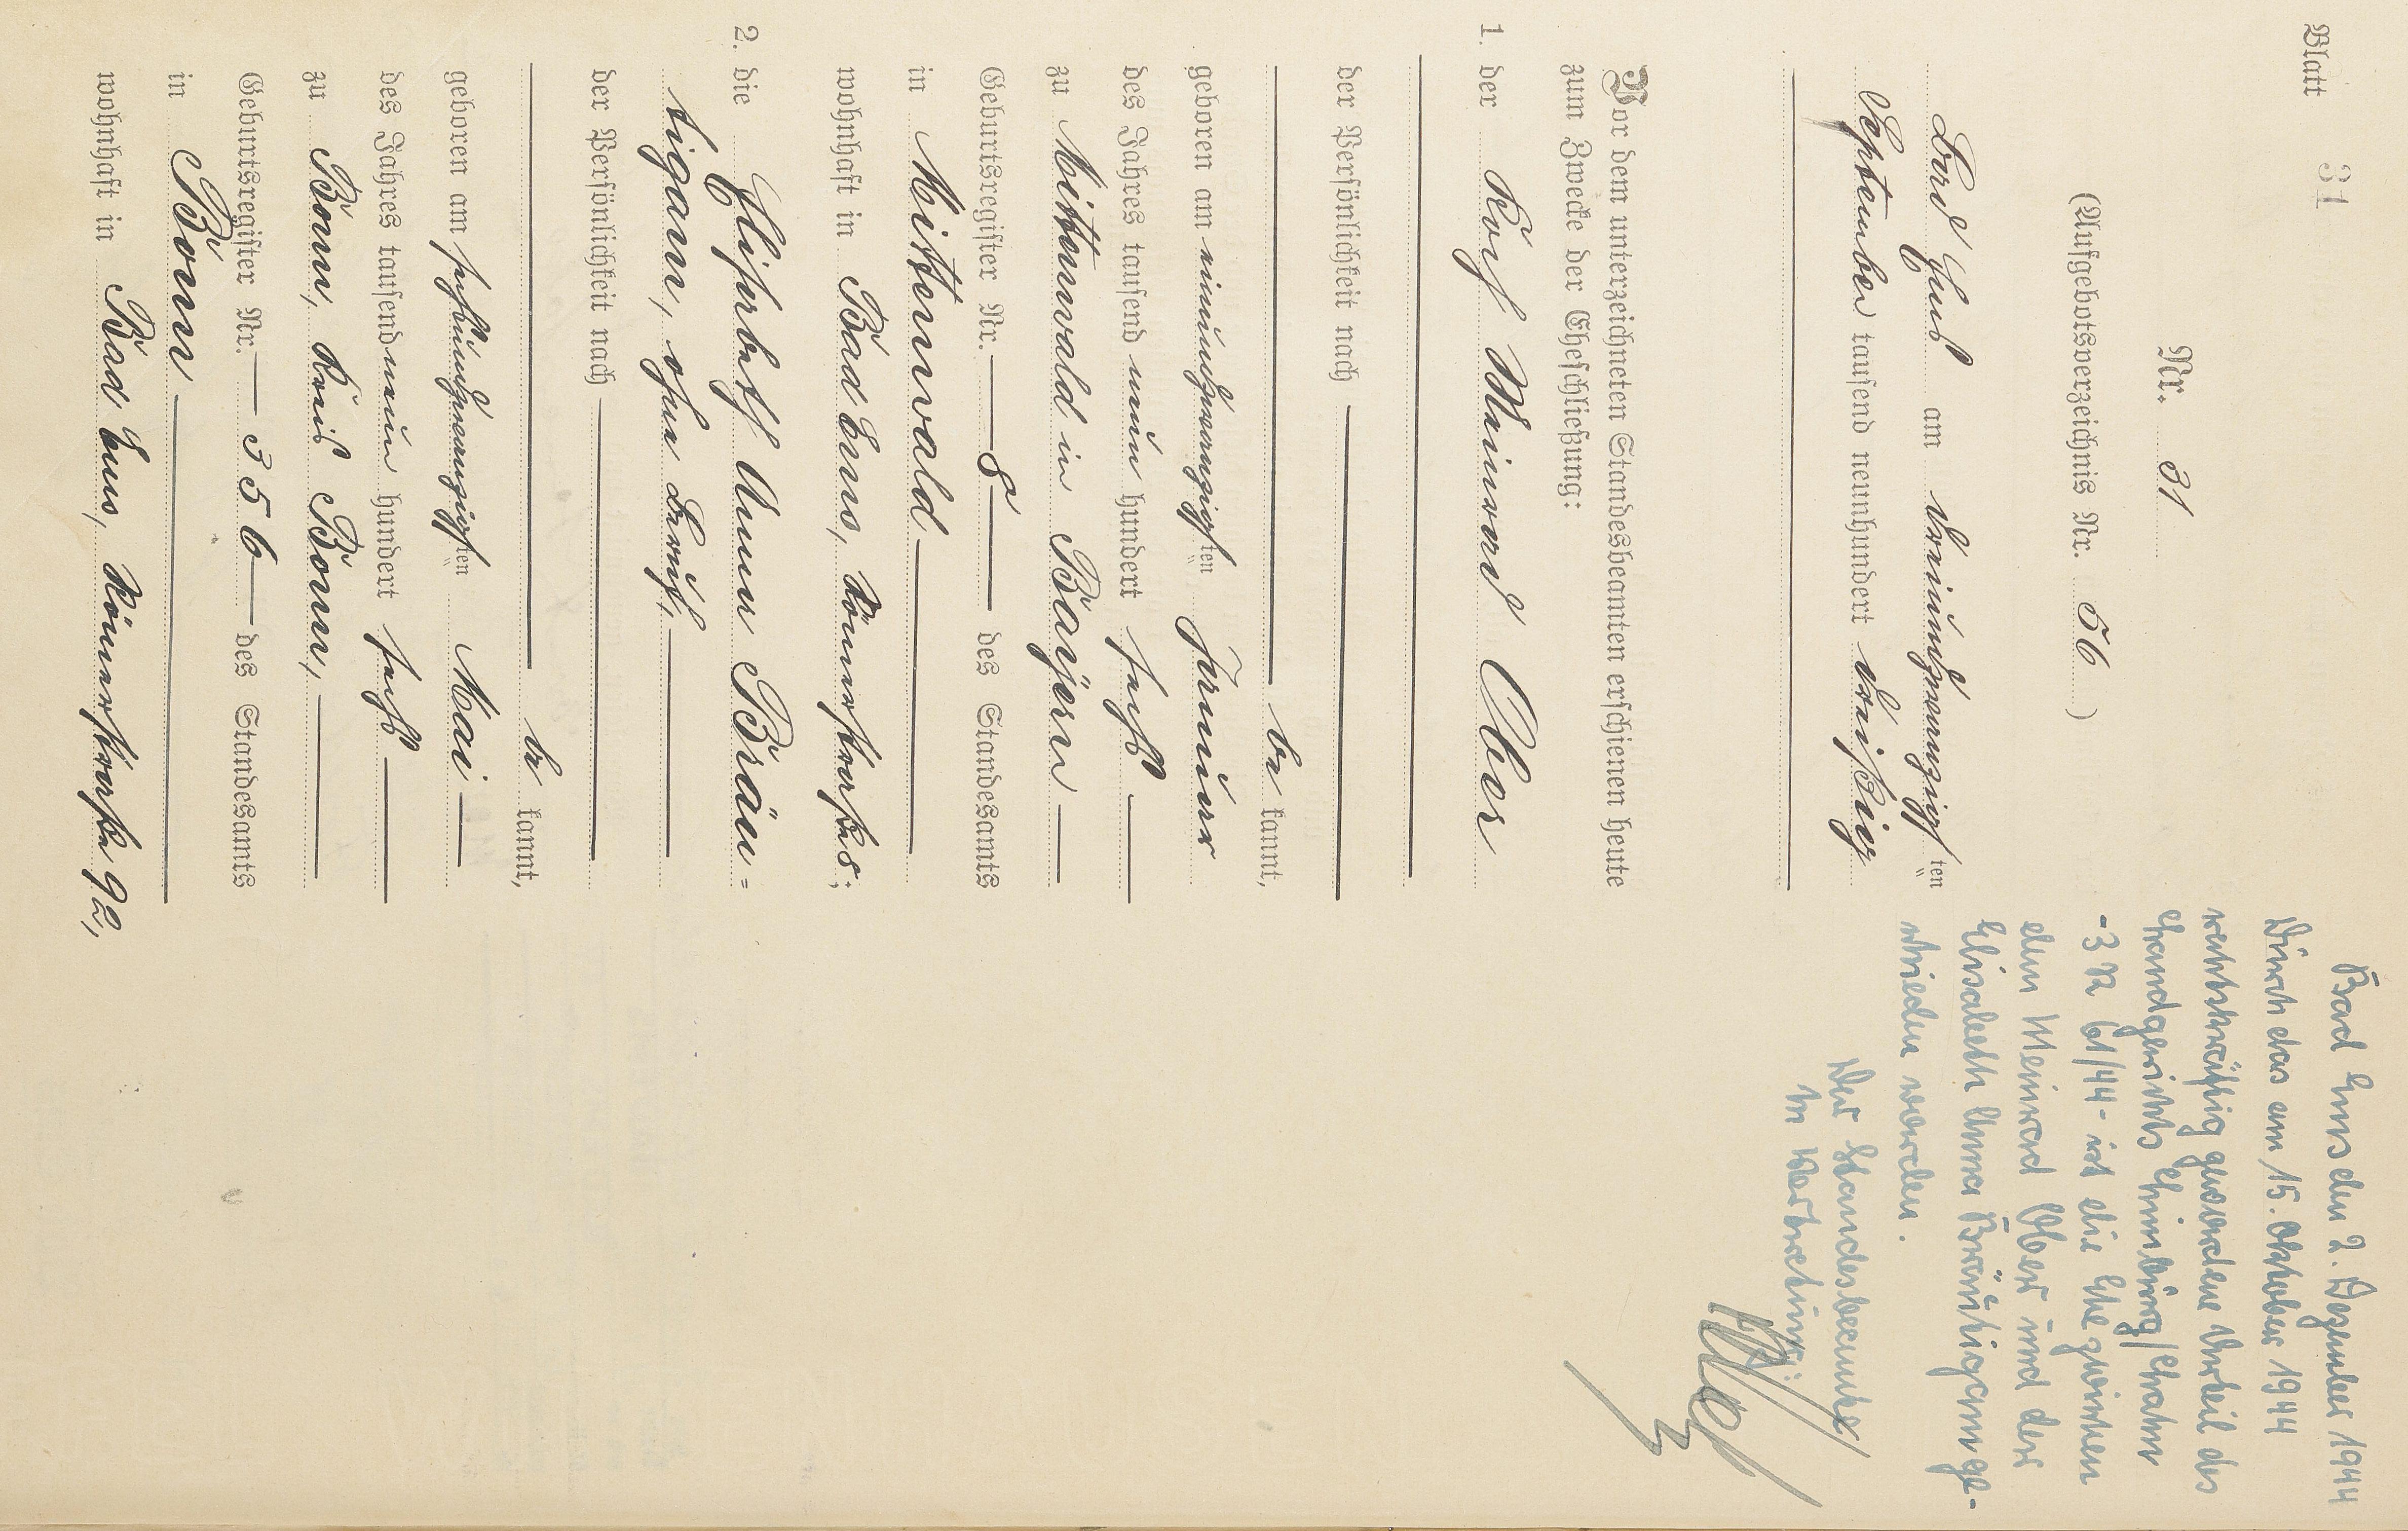 Blatt 31
Nr. 31
(Aufgebotsverzeichnis Nr. 56)
Bad Ems am dreiundzwanzigsten
September tausend neunhundert dreißig
Vor dem unterzeichneten Standesbeamten erschienen heute
zum Zwecke der Eheschließung:
1. der Koch Meinrad Ober
der Persönlichkeit nach
be kannt,
geboren am neunundzwanzigsten Januar
des Jahres tausend neun hundert sechs
zu Mittenwald in Bayern
Geburtsregister Nr. 8 des Standesamts
in Mittenwald
wohnhaft in Bad Ems, Römerstraße 8;
2. die Elisabeth Anna Bräu=
tigam, ohne Beruf,
der Persönlichkeit nach
be kannt,
geboren am sechsundzwanzigsten Mai
des Jahres tausend neun hundert sechs
zu Bonn, Kreis Bonn,
Geburtsregister Nr. 356 des Standesamts
in Bonn
wohnhaft in Bad Ems, Römerstraße 92,
Bad Ems den 2. Dezember 1944
Durch das am 15. Oktober 1944
rechtskräftig gewordene Urteil des
Landgerichts Limburg/Lahn
-3 R 61/44- ist die Ehe zwischen
dem Meinrad Ober und der
Elisabeth Anna Bräutigam ge-
schieden worden.
Der Standesbeamte
In Vertretung: